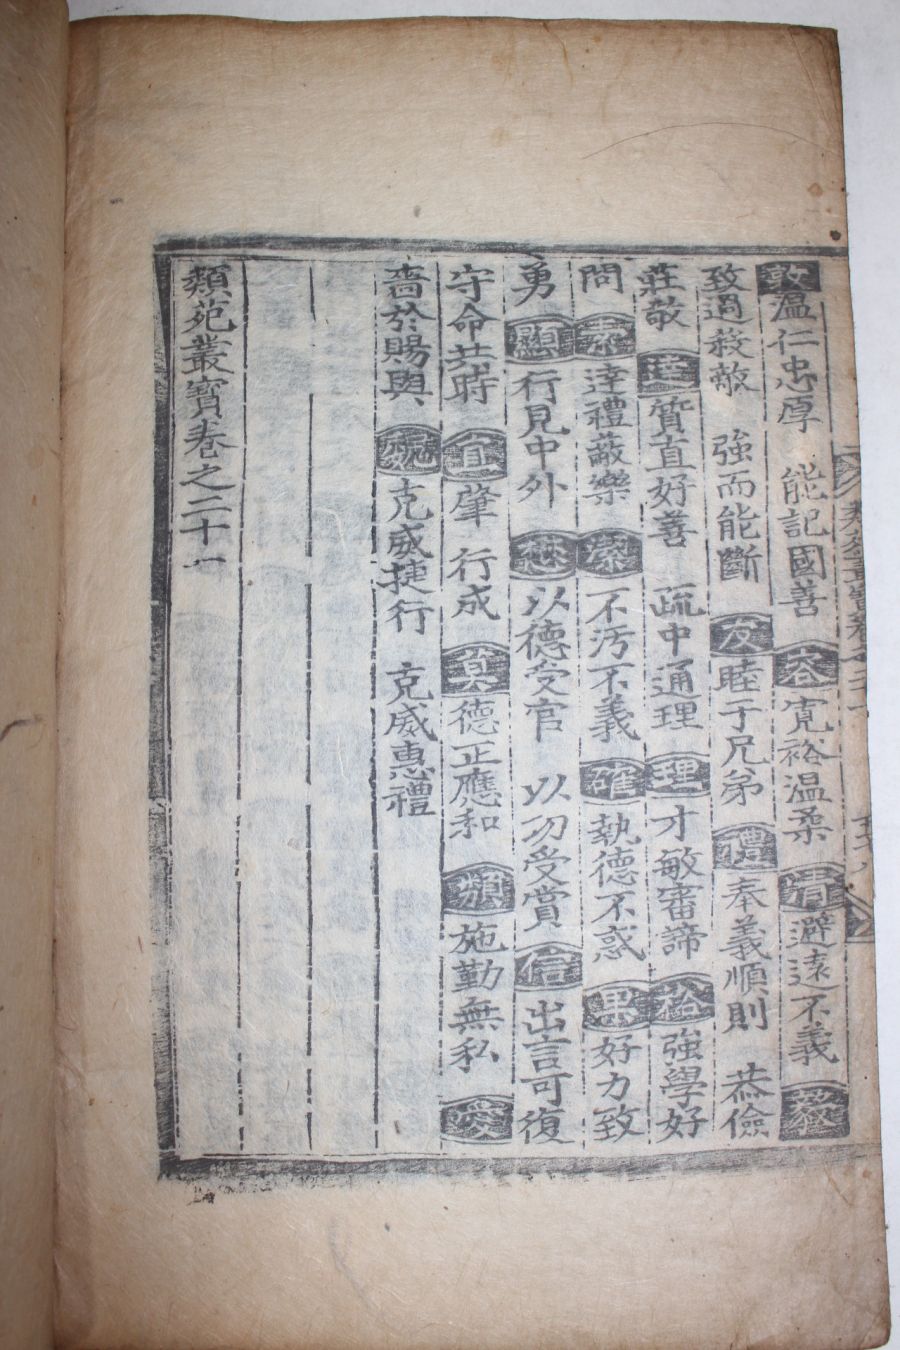 敦溫仁忠厚 能記國善 容寬裕溫柔 清避遠不義
致過殺敵 強而能斷 友睦于兄弟 禮奉義順則 恭儉
莊敬 質直好善 疏中通理 理才敏審諦 強學好
問 達禮蔽樂 潔不汚不義 確執德不惑 果好力致
勇 顯行見中外 以德受官 以功受賞 信出言可復
守命共時 宜肇 行成 莫德正應和 類施勤無私 愛
嗇於賜與 克威捷行 克威惠禮
類苑叢寶卷之二十八